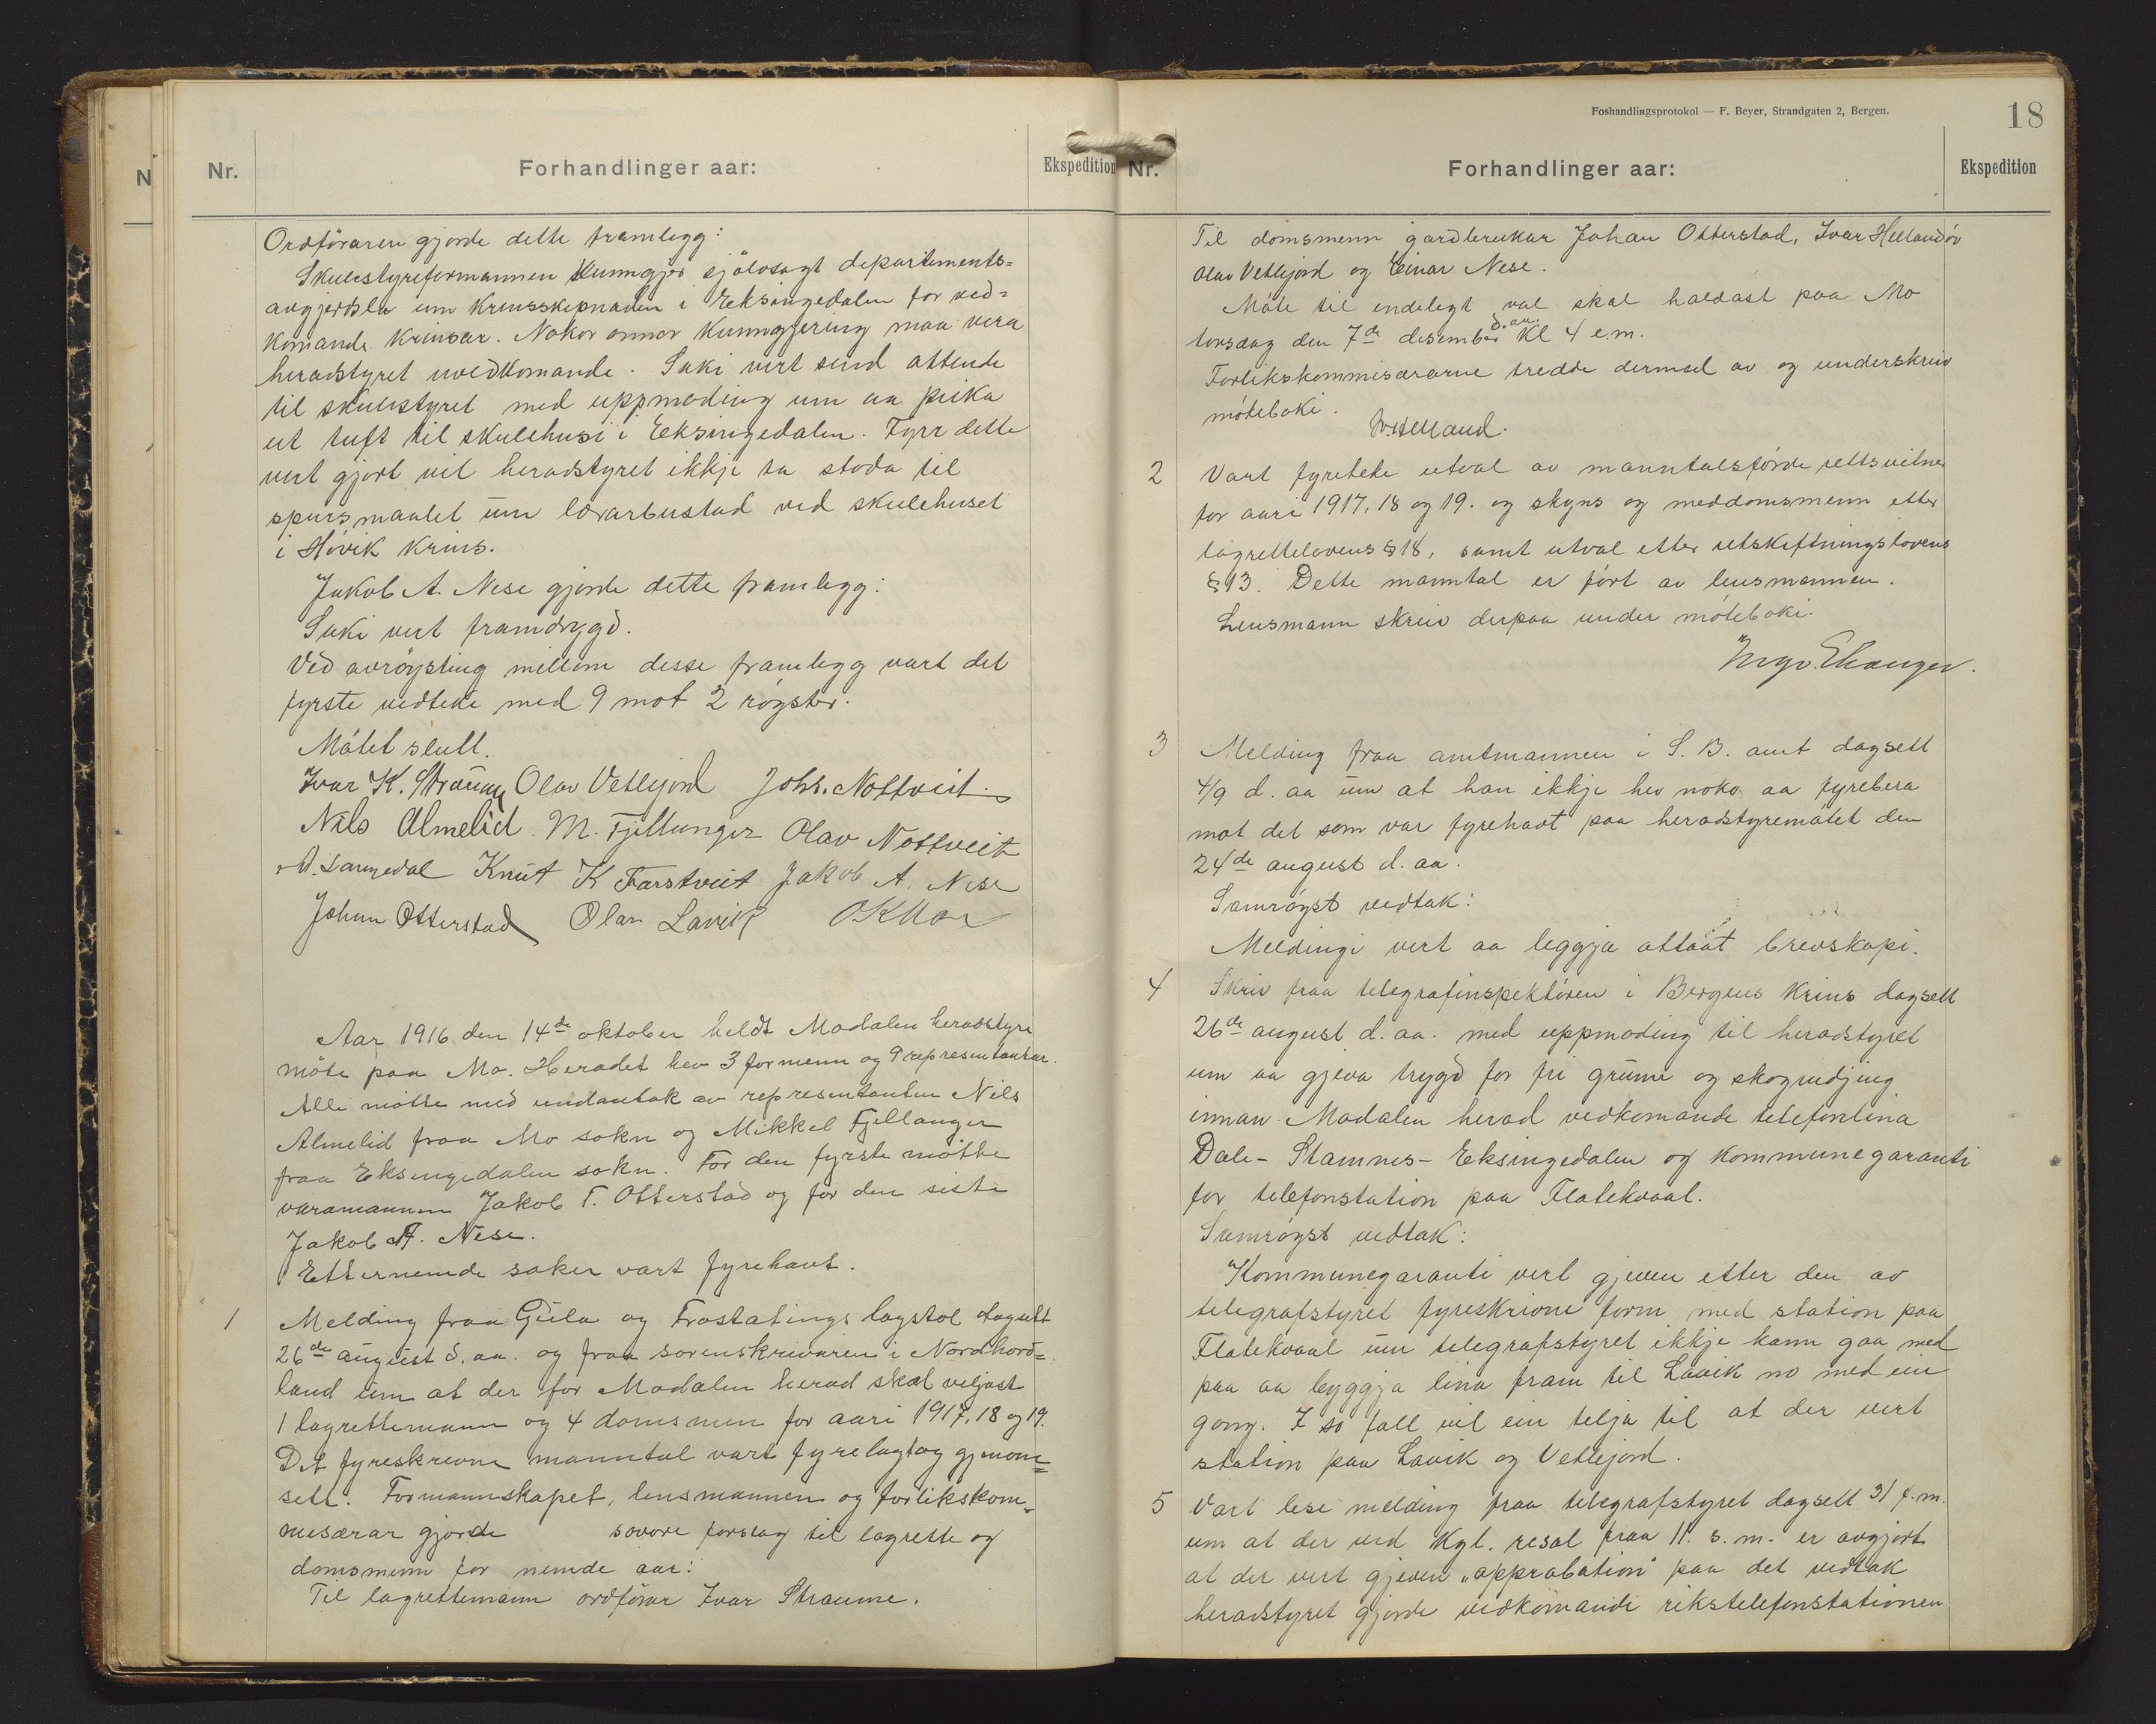 Nr.
Forhandlinger aar:
Ekspedition
Ordføraren gjorde dette framlegg:
Skulestyreformannen kunngjer sjølvsagt departements=
avgjerdsla um krinsskipnaden i Eksingedalen for ved=
komande krinsar. Nokor onnor kunngjering maa vera
heradstyret uvedkomande. Saki vert send attende
til skulestyret med uppmoding um aa peika
ut tuft til skulehusi i Eksingedalen. Fyrr dette
vert gjort vil heradstyret ikkje ta stoda til
spursmaalet um lærarbustad ved skulehuset
i Høvik krins.
Jakob A. Nese gjorde dette framlegg:
Saki vert framdrygd.
Ved avrøysting millom desse framlegg vart det
fyrste vedteke med 9 mot 2 røyster.
Møtet slutt.
Ivar K. Straume Olav Vetlejord Johs. Nottveit
Nils Almelid M. Fjellanger Olav Nottveit
A. Langedal Knut K Farstveit Jakob A. Nese
Johan Otterstad Olav Lavik O K Moe
Aar 1916 den 14de oktober heldt Modalen heradstyre
møte paa Mo. Heradet hev 3 formenn og 9 representantar.
Alle møtte med undantak av representanten Nils
Almelid fraa Mo sokn og Mikkel Fjellanger
fraa Eksingedalen sokn. For den fyrste møtte
varamannen Jakob T. Otterstad og for den siste
Jakob A. Nese.
Etternemde saker vart fyrehavt.
1 Melding fraa Gula og Frostatings lagstol dagsett
26de august d. aa. og fraa sorenskrivaren i Nordhord=
land um at der for Modalen herad skal veljast
1 lagrettemann og 4 domsmen for aari 1917, 18 og 19.
Det fyreskrevne manntal vart fyrelagt og gjenom=
sett. Formannskapet, lensmannen og forlikskom=
misærar gjorde sovore forslag til lagrette og
domsmenn for nemde aar:
Til lagrettemann ordførar Ivar Straume.
Foshandlingsprotokol — F. Beyer, Strandgaten 2, Bergen.
18
Nr.
Forhandlinger aar:
Ekspedition
Til domsmenn gardbrukar Johan Otterstad, Ivar Hellandør
Olav Vetlejord og Einar Nese.
Møte til endelegt val skal haldast paa Mo
torsdag den 7de desember d. aa. Kl 4 e.m.
Forlikskommisærarne tredde dermed av og underskreiv
møteboki.
Helland.
2 Vart fyreteke utval av manntalsførde rettsvitne
for aari 1917, 18 og 19. og skyns og meddomsmenn etter
lagrettelovens § 18, samt utval etter utskiftningslovens
§ 13. Dette manntal er ført av lensmannen.
Lensmann skreiv derpaa under møteboki.
Ingv. Ekanger.
3 Melding fraa amtmannen i S. B. amt dagsett
4/9 d. aa um at han ikkje hev noko aa fyrebera
mot det som var fyrehavt paa heradstyremøtet den
24de august d. aa.
Samrøyst vedtak:
Meldingi vert aa leggja attaat brevskapi.
4 Skriv fraa telegrafinspektøren i Bergens krins dagsett
26de august d. aa. med uppmoding til heradstyret
um aa gjeva trygd for fri grunn og skogrydjing
innan Modalen herad vedkomande telefonlina
Dale - Stamnes - Eksingedalen og kommunegaranti
for telefonstation paa Flatekvaal.
Samrøyst vedtak:
Kommunegaranti vert gjeven etter den av
telegrafstyret fyreskrivne form med station paa
Flatekvaal um telegrafstyret ikkje kann gaa med
paa aa byggja lina fram til Lavik no med ein
gong. I so fall vil ein telja til at der vert
station paa Lavik og Vetlejord.
5 Vart lese melding fraa telegrafstyret dagsett 31 f. m.
um at der ved Kgl. resol fraa 11. s. m. er avgjort
at der vert gjeven „approbation" paa det vedtak
heradstyret gjorde vedkomande rikstelefonstationen